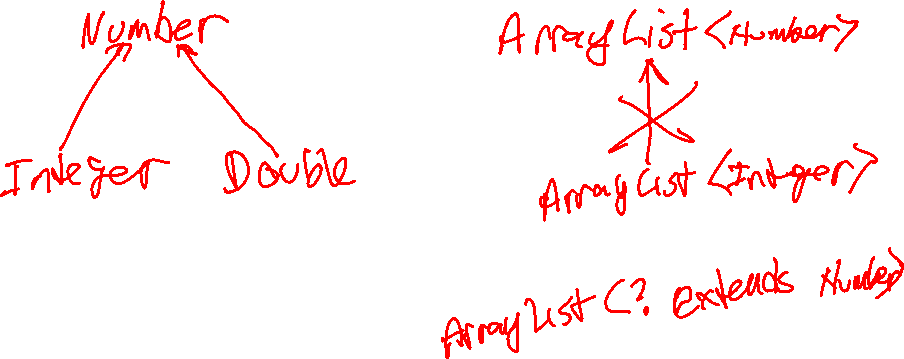 Number
Integer Double
ArrayList<Number>
ArrayList<Integer>
ArrayList<? extends Number>